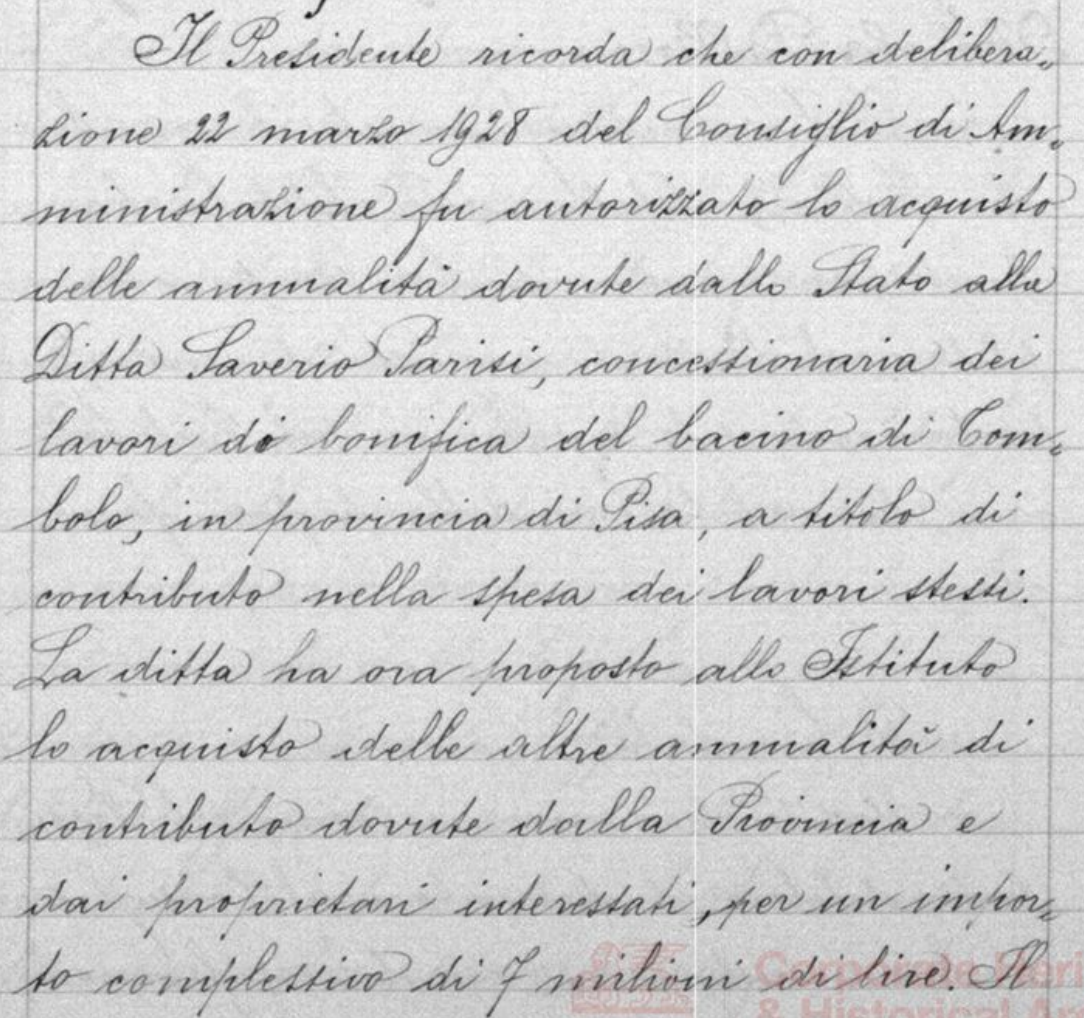 Il Presidente ricorda che con delibera„
zione 22 marzo 1928 del Consiglio di Am„
ministrazione fu autorizzato lo acquisto
delle annualità dovute dallo Stato alla
Ditta Saverio Parisi, concessionaria dei
lavori di bonifica del bacino di Tom„
bolo, in provincia di Pisa, a titolo di
contributo nella spesa dei lavori stessi.
La ditta ha ora proposto allo Istituto
lo acquisto delle altre annualità di
contributo dovute dalla Provincia e
dai proprietari interessati, per un impor„
to complessivo di 7 milioni di lire. Il
& Historical